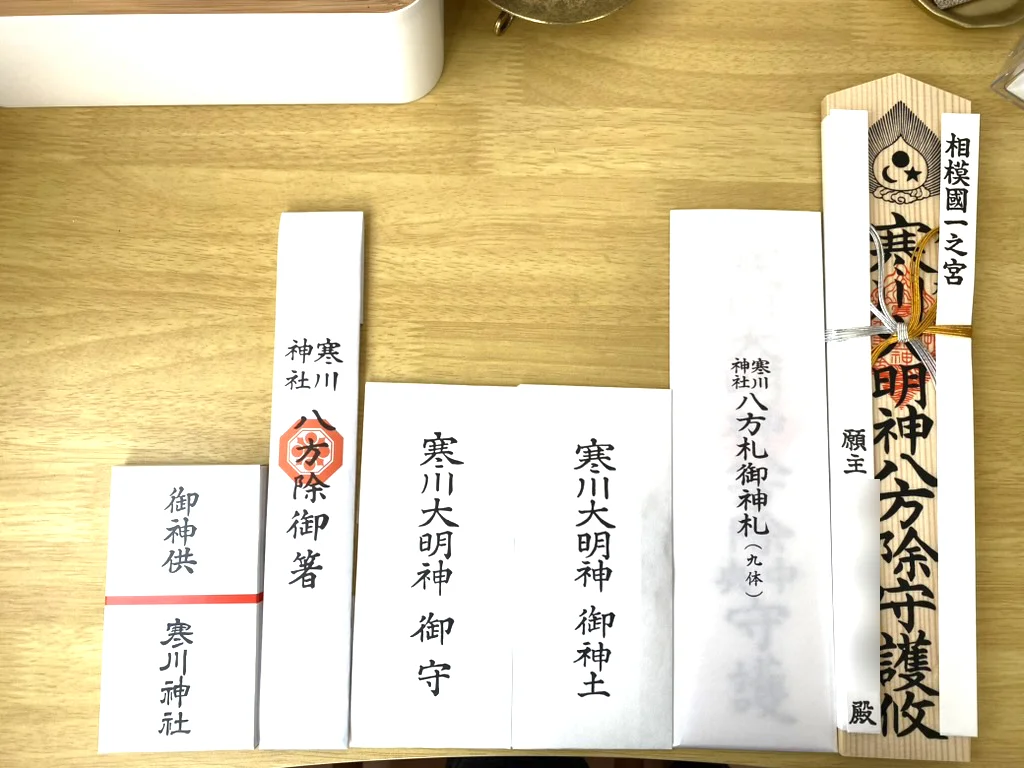 相模國一之宮
寒川大明神八方除守護攸
願主
殿
寒川
神社
八方札御神札(九体)
寒川大明神 御神土
寒川大明神 御守
寒川
神社
八方除御箸
御神供
寒川神社